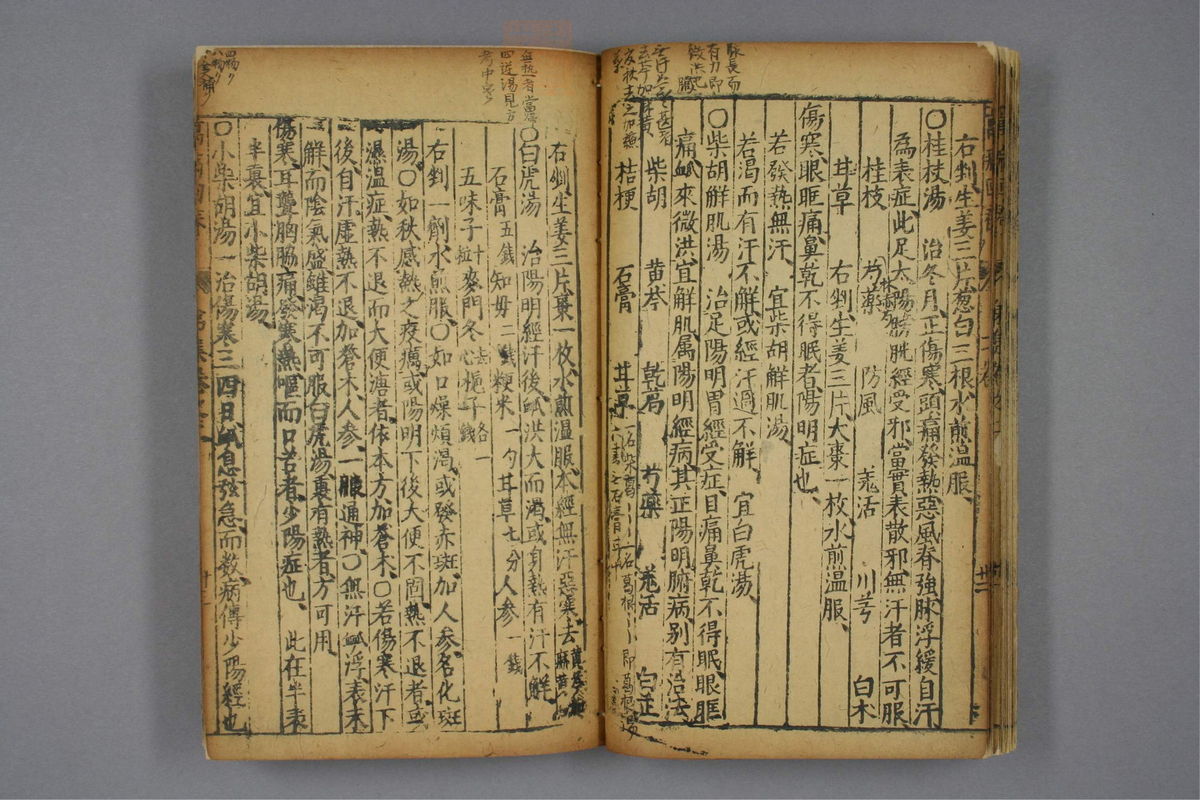 右剉生姜三片葱白三根水煎温服
〇桂枝湯 治冬月正傷寒頭痛發熱惡風脊強脉浮緩自汗
為表症此足太陽膀胱經受邪當實表散邪無汗者不可服
桂枝 芍薬 防風 羗活 川芎 白术
甘草 右剉生姜三片大棗一枚水煎温服
傷寒眼眶痛鼻乾不得眠者陽明症也
若發熱無汗 宜柴胡解肌湯
若渴而有汗不解或經汗過不解 宜白虎湯
〇柴胡解肌湯 治足陽明胃經受症目痛鼻乾不得眠眼眶
痛脉來微洪宜解肌属陽明經病其正陽明腑病别有治法
柴胡 黄芩 乾葛 芍薬 羗活 白芷
桔梗 石膏 甘草
右剉生姜三片棗一枚水煎温服本經無汗惡寒去黄芩加麻黄
〇白虎湯 治陽明經汗後脉洪大而渴或身熱有汗不解
石膏五錢 知母二錢 粳米一勺 甘草七分 人參一錢
五味子十粒 麥門冬去心 梔子各一錢
右剉一劑水煎服〇如口燥煩渴或發赤斑加人參名化斑
湯〇如秋感熱之疫癘或陽明下後大便不固熱不退者或
濕温症熱不退而大便溏者依本方加蒼木〇若傷寒汗下
後自汗虛熱不退加蒼木人參一服通神〇無汗脉浮表未
解而陰氣盛雖渴不可服白虎湯裏有熱者方可用
傷寒耳聾胸脇痛發寒熱嘔而口苦者少陽症也 此在半表
半裏宜小柴胡湯
〇小柴胡湯 治傷寒三四日脉息弦急而數病傳少陽經也